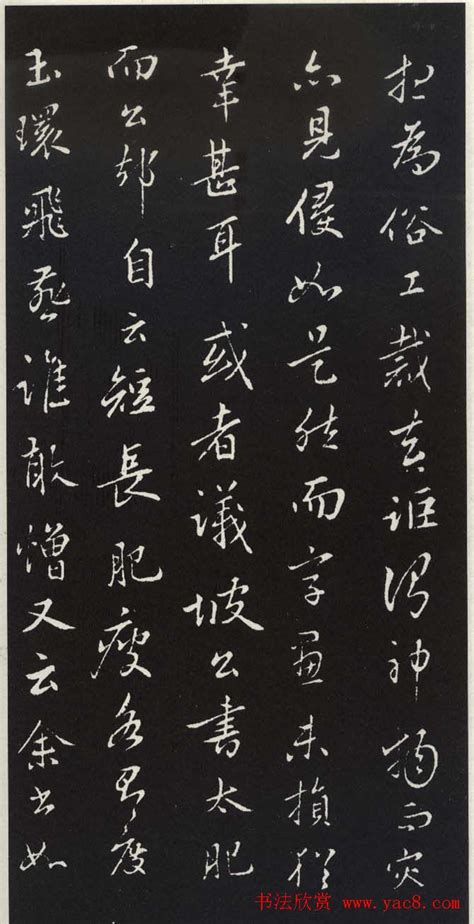 為俗工裁去詎謂神物而災
亦見侵如是然而字畫未損猶
幸甚耳或者議坡公書太肥
而公却自云短長肥瘦各有度
玉環飛燕誰敢憎又云余書如
书法欣赏 www.yac8.com